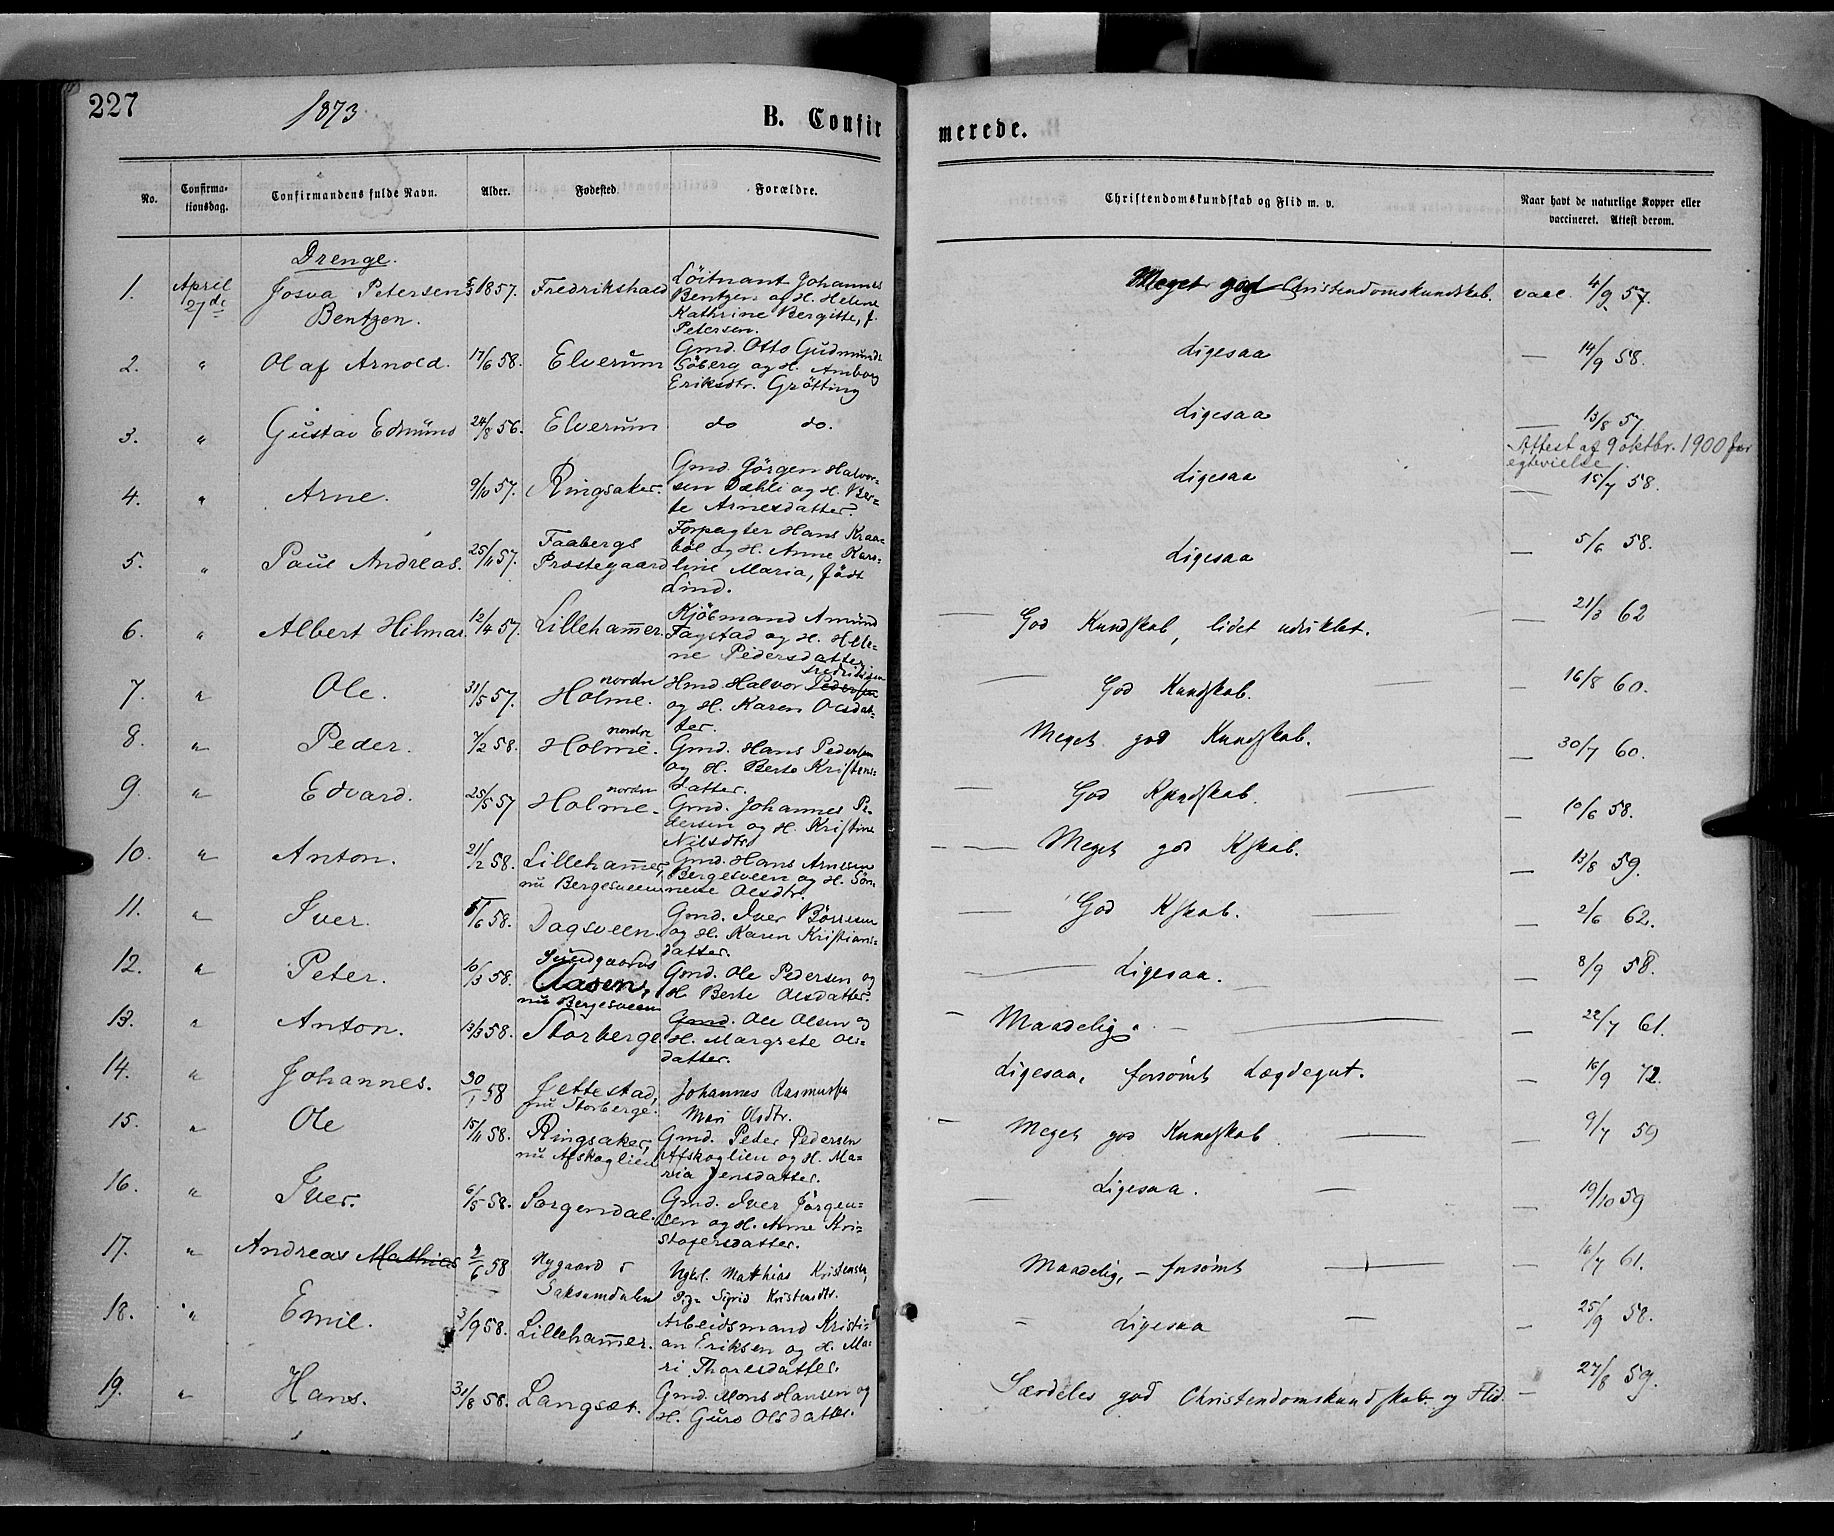 227
1873.
B. Confir
merede.
No.
Confirma-
tionsdag.
Confirmandens fulde Navn.
Alder.
Fødested.
Forældre.
Christendomskundskab og Flid m. v.
Naar havt de naturlige Kopper eller
vaccineret. Attest derom.
Drenge.
1. April 27de Josva Petersen 1857. Fredrikshald Löitnant Johannes Meget god Christendomskundskab. vacc. 4/9 57.
Bentzen. Bentzen og H. Helene
Kathrine Bergitte, f.
Petersen.
2. " Olaf Arnold. 17/6 58. Elverum Gmd. Otto Gudmunds. Ligesaa — 14/9 58.
Söberg og H. Amborg
Eriksdtr. Grötting
3. " Gustav Edmund 24/8 56. Elverum do do. Ligesaa — 13/8 57
Attest af 9 oktbr. 1900 for
egtevielse.
4. " Arne. 9/10 57. Ringsaker. Gmd. Jörgen Halvor- Ligesaa — 15/7 58.
sen Dæhli og H. Ber-
te Arnesdatter.
5. " Paul Andreas. 25/11 57. Faabergs Forpagter Hans Kraa- Ligesaa — 5/6 58.
Præstegaard böl og H. Anne Karo-
line Maria, født
Lind.
6. " Albert Hilmar 12/4 57. Lillehamer. Kjöbmand Amund God Kundskab, lidet udviklet. — 21/3 62
Fagstad og H. Hele-
ne Pedersdatter
7. " Ole. 31/5 57. nordre Holme. Hmd. Halvor Pedersen Fredriksen God Kundskab. — 16/8 60.
og H. Karen Olsdat-
ter.
8. " Peder. 7/2 58. nordre Holme. Gmd. Hans Pedersen Meget god Kundskab. — 30/7 60.
og H. Berte Kristens-
datter.
9. " Edvard. 25/5 57 nordre Holme. Gmd. Johannes Pe- God Kundskab. — 10/6 58.
dersen og H. Kristine
Nilsdtr.
10. " Anton. 21/2 58. Lillehamer, Gmd. Hans Arnesen Meget god Kskab. — 13/8 59.
nu Bergesveen Bergesveen og H. Sön-
neve Olsdtr.
11. " Iver. 5/6 58. Dagsveen. Gmd. Iver Börresen God Kskab. — 2/6 62.
og H. Karen Kristians-
datter.
12. " Peter. 10/3 58. Sundgaards Aasen, Gmd. Ole Pedersen og Ligesaa. — 8/9 58.
nu Bergesveen H. Berte Olsdatter.
13. " Anton. 13/3 58. Storberge Gmd. Ole Olsen og Maadelig. — 22/7 61.
H. Margrete Ols-
datter.
14. " Johannes. 30/1 58 Jettestad, Johannes Rasmussen Ligesaa, forsømt Lægdegut. — 16/9 72.
nu Storberge. Mari Olsdtr.
15. " Ole 15/11 58. Ringsaker, Gmd. Peder Pedersen Meget god Kundskab. — 9/7 59
nu Afskoglien Afskoglien og H. Ma-
ria Jensdatter.
16. " Iver. 6/5 58. Sorgendal. Gmd. Iver Jörgen- Ligesaa. — 19/10 59
sen og H. Anne Kri-
stofersdatter.
17. " Andreas Mathias 2/6 58 Nygaard i Ugkl. Mathias Kristensen, Maadelig, – forsømt — 16/7 61.
Saksumdalen Pige Sigrid Kristensdtr.
18. " Emil. 3/9 58. Lillehamer. Arbeidsmand Kristi- Ligesaa — 25/9 58.
an Eriksen og H. Ma-
ri Thoresdatter.
19. " Hans. 31/8 58. Langsæt. Gmd. Mons Hansen og Særdeles god Christendomskundskab og Flid. — 27/8 59.
H. Guro Olsdatter.